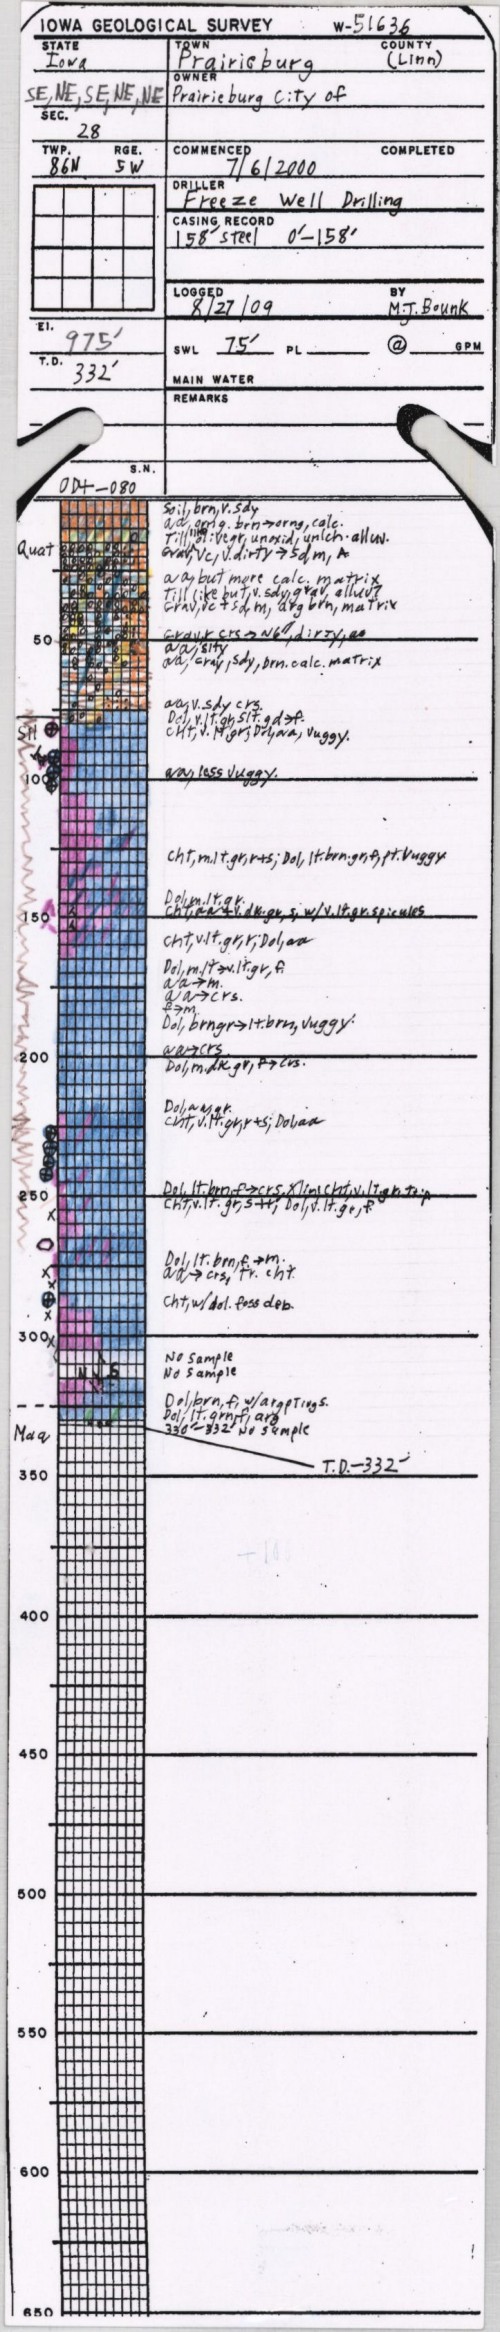 IOWA GEOLOGICAL SURVEY W-51636
STATE TOWN COUNTY
Iowa Prairieburg (Linn)
OWNER
SE, NE, SE, NE, NE Prairieburg City of
SEC.
28
TWP. RGE. COMMENCED COMPLETED
86N 5W 7/6/2000
DRILLER
Freeze Well Drilling
CASING RECORD
158' steel 0'-158'
LOGGED BY
8/27/09 M.J. Bounk
El. 975'
SWL 75' PL @ GPM
T.D. 332'
MAIN WATER
REMARKS
S.N.
OD4-080
Soil, brn, v. sdy
aa, orng. brn→orng, calc.
Till, unoxid, unlch. alluv.
Quat Grav, vc, v. dirty→sdm, A
aa, but more calc. matrix
Till like but, v. sdy, grav, alluv?
Grav, vc+sdm, arg brn, matrix
Grav, v crs→ dirty, aa
50
aa, slty
aa, gray, sdy, brn. calc. matrix
aa, v. sdy crs.
Dol, v. lt. gr, slt. gd→f.
Sil Cht, v. lt. gr; Dol, aa, vuggy.
100 aa, less vuggy.
Cht, m. lt. gr, r+s; Dol, lt. brn. gr, f, pt. vuggy
Dol, m. lt. gr.
150 Cht, aa+v. dk. gr, s, w/v. lt. gr. spicules
Cht, v. lt. gr, r; Dol, aa
Dol, m. lt→v. lt. gr, f.
aa→m.
aa→crs.
f→m
Dol, brn gr→lt. brn, vuggy.
200 aa→crs
Dol, m. dk. gr, f→crs.
Dol, aa, gr.
Cht, v. lt. gr, r+s; Dol, aa
250 Dol, lt. brn, f→crs. Xlin; Cht, v. lt. gr, trip
Cht, v. lt. gr, s+t; Dol, v. lt. gr, f.
Dol, lt. brn, f→m.
aa→crs, Tr. cht.
Cht, w/dol. foss deb.
300
No Sample
N S No Sample
Dol, brn, f, w/arg ptings.
Dol, lt. grn, f, arg
Maq 330'-332' No Sample
T.D.-332'
350
400
450
500
550
600
650